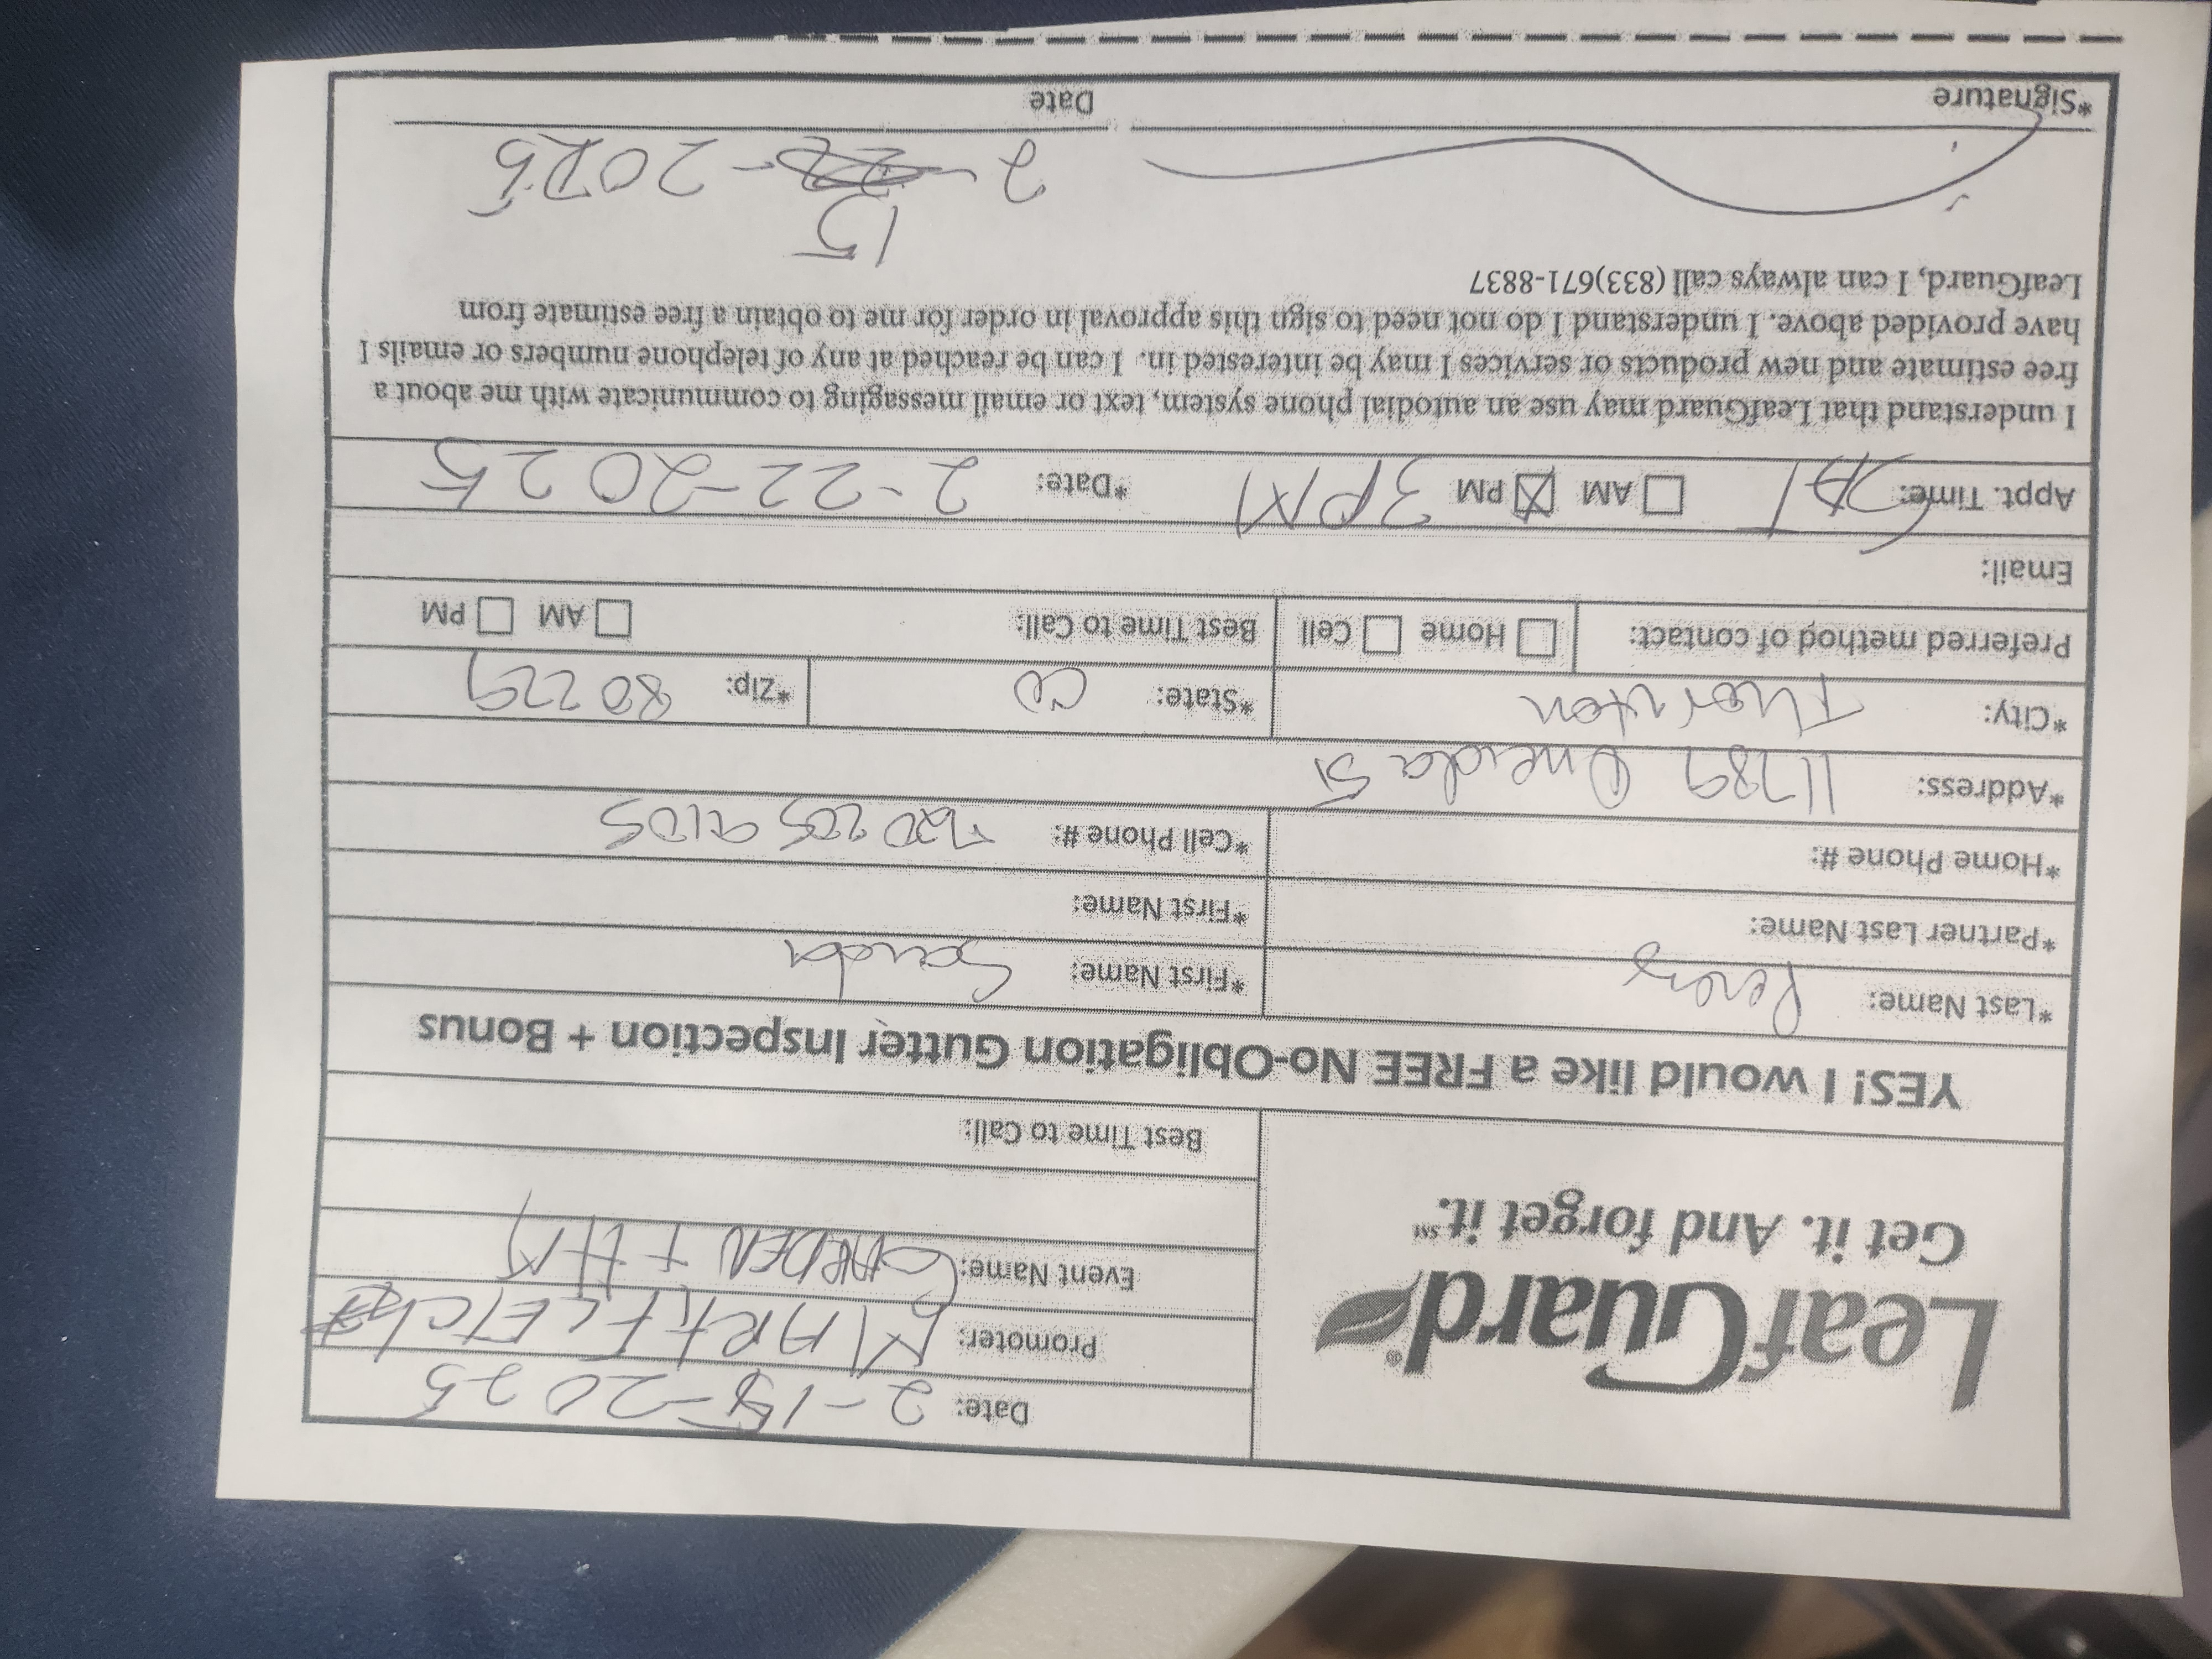 LeafGuard®
Get it. And forget it.℠
Date: 2-15-2025
Promoter: MARK FLETCHER
Event Name: GARDEN + HM
Best Time to Call:
YES! I would like a FREE No-Obligation Gutter Inspection + Bonus
*Last Name: Perez *First Name: Sanda
*Partner Last Name: *First Name:
*Home Phone #: *Cell Phone #: 720 205 9105
*Address: 11789 Oneida St
*City: Thornton *State: CO *Zip: 80229
Preferred method of contact: Home Cell Best Time to Call: AM PM
Email:
Appt. Time: SAT AM PM 3PM *Date: 2-22-2025
I understand that LeafGuard may use an autodial phone system, text or email messaging to communicate with me about a
free estimate and new products or services I may be interested in. I can be reached at any of telephone numbers or emails I
have provided above. I understand I do not need to sign this approval in order for me to obtain a free estimate from
LeafGuard, I can always call (833)671-8837
15
2 - - 2025
*Signature Date